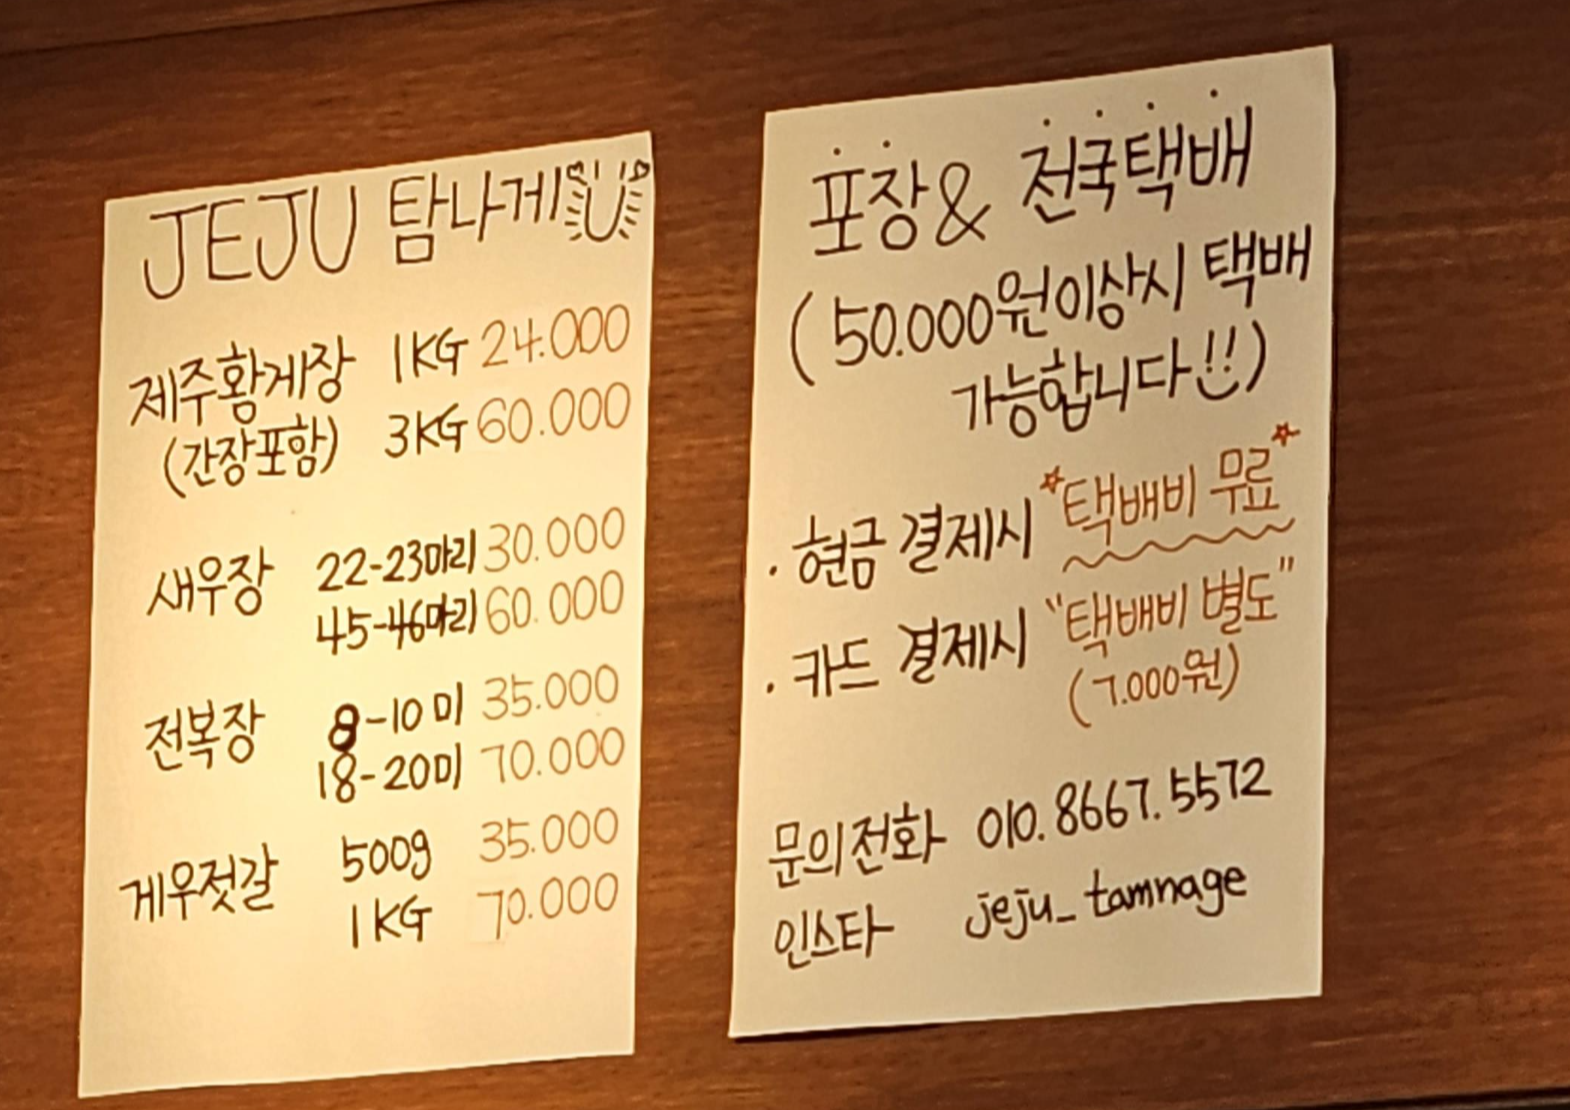 JEJU 탐나게
제주황게장 1KG 24.000
(간장포함) 3KG 60.000
새우장 22-23마리 30.000
45-46마리 60.000
전복장 8-10미 35.000
18-20미 70.000
게우젓갈 500g 35.000
1KG 70.000
포장 & 전국택배
(50.000원이상시 택배
가능합니다!!)
· 현금 결제시 *택배비 무료*
· 카드 결제시 "택배비 별도"
(7.000원)
문의전화 010.8667.5572
인스타 jeju_tamnage